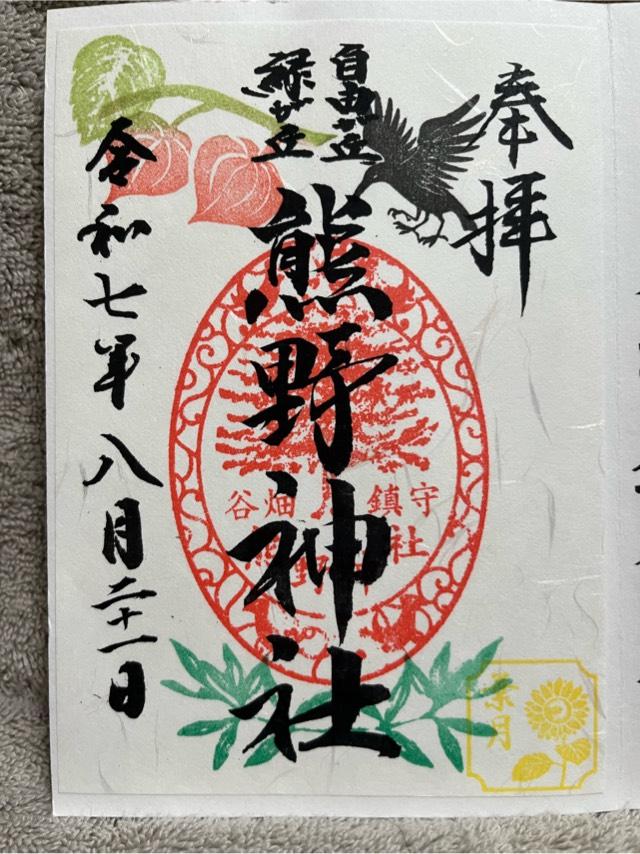 奉拝
自由が丘
緑が丘
熊野神社
令和七年八月二十一日
鎮守
谷畑
葉月